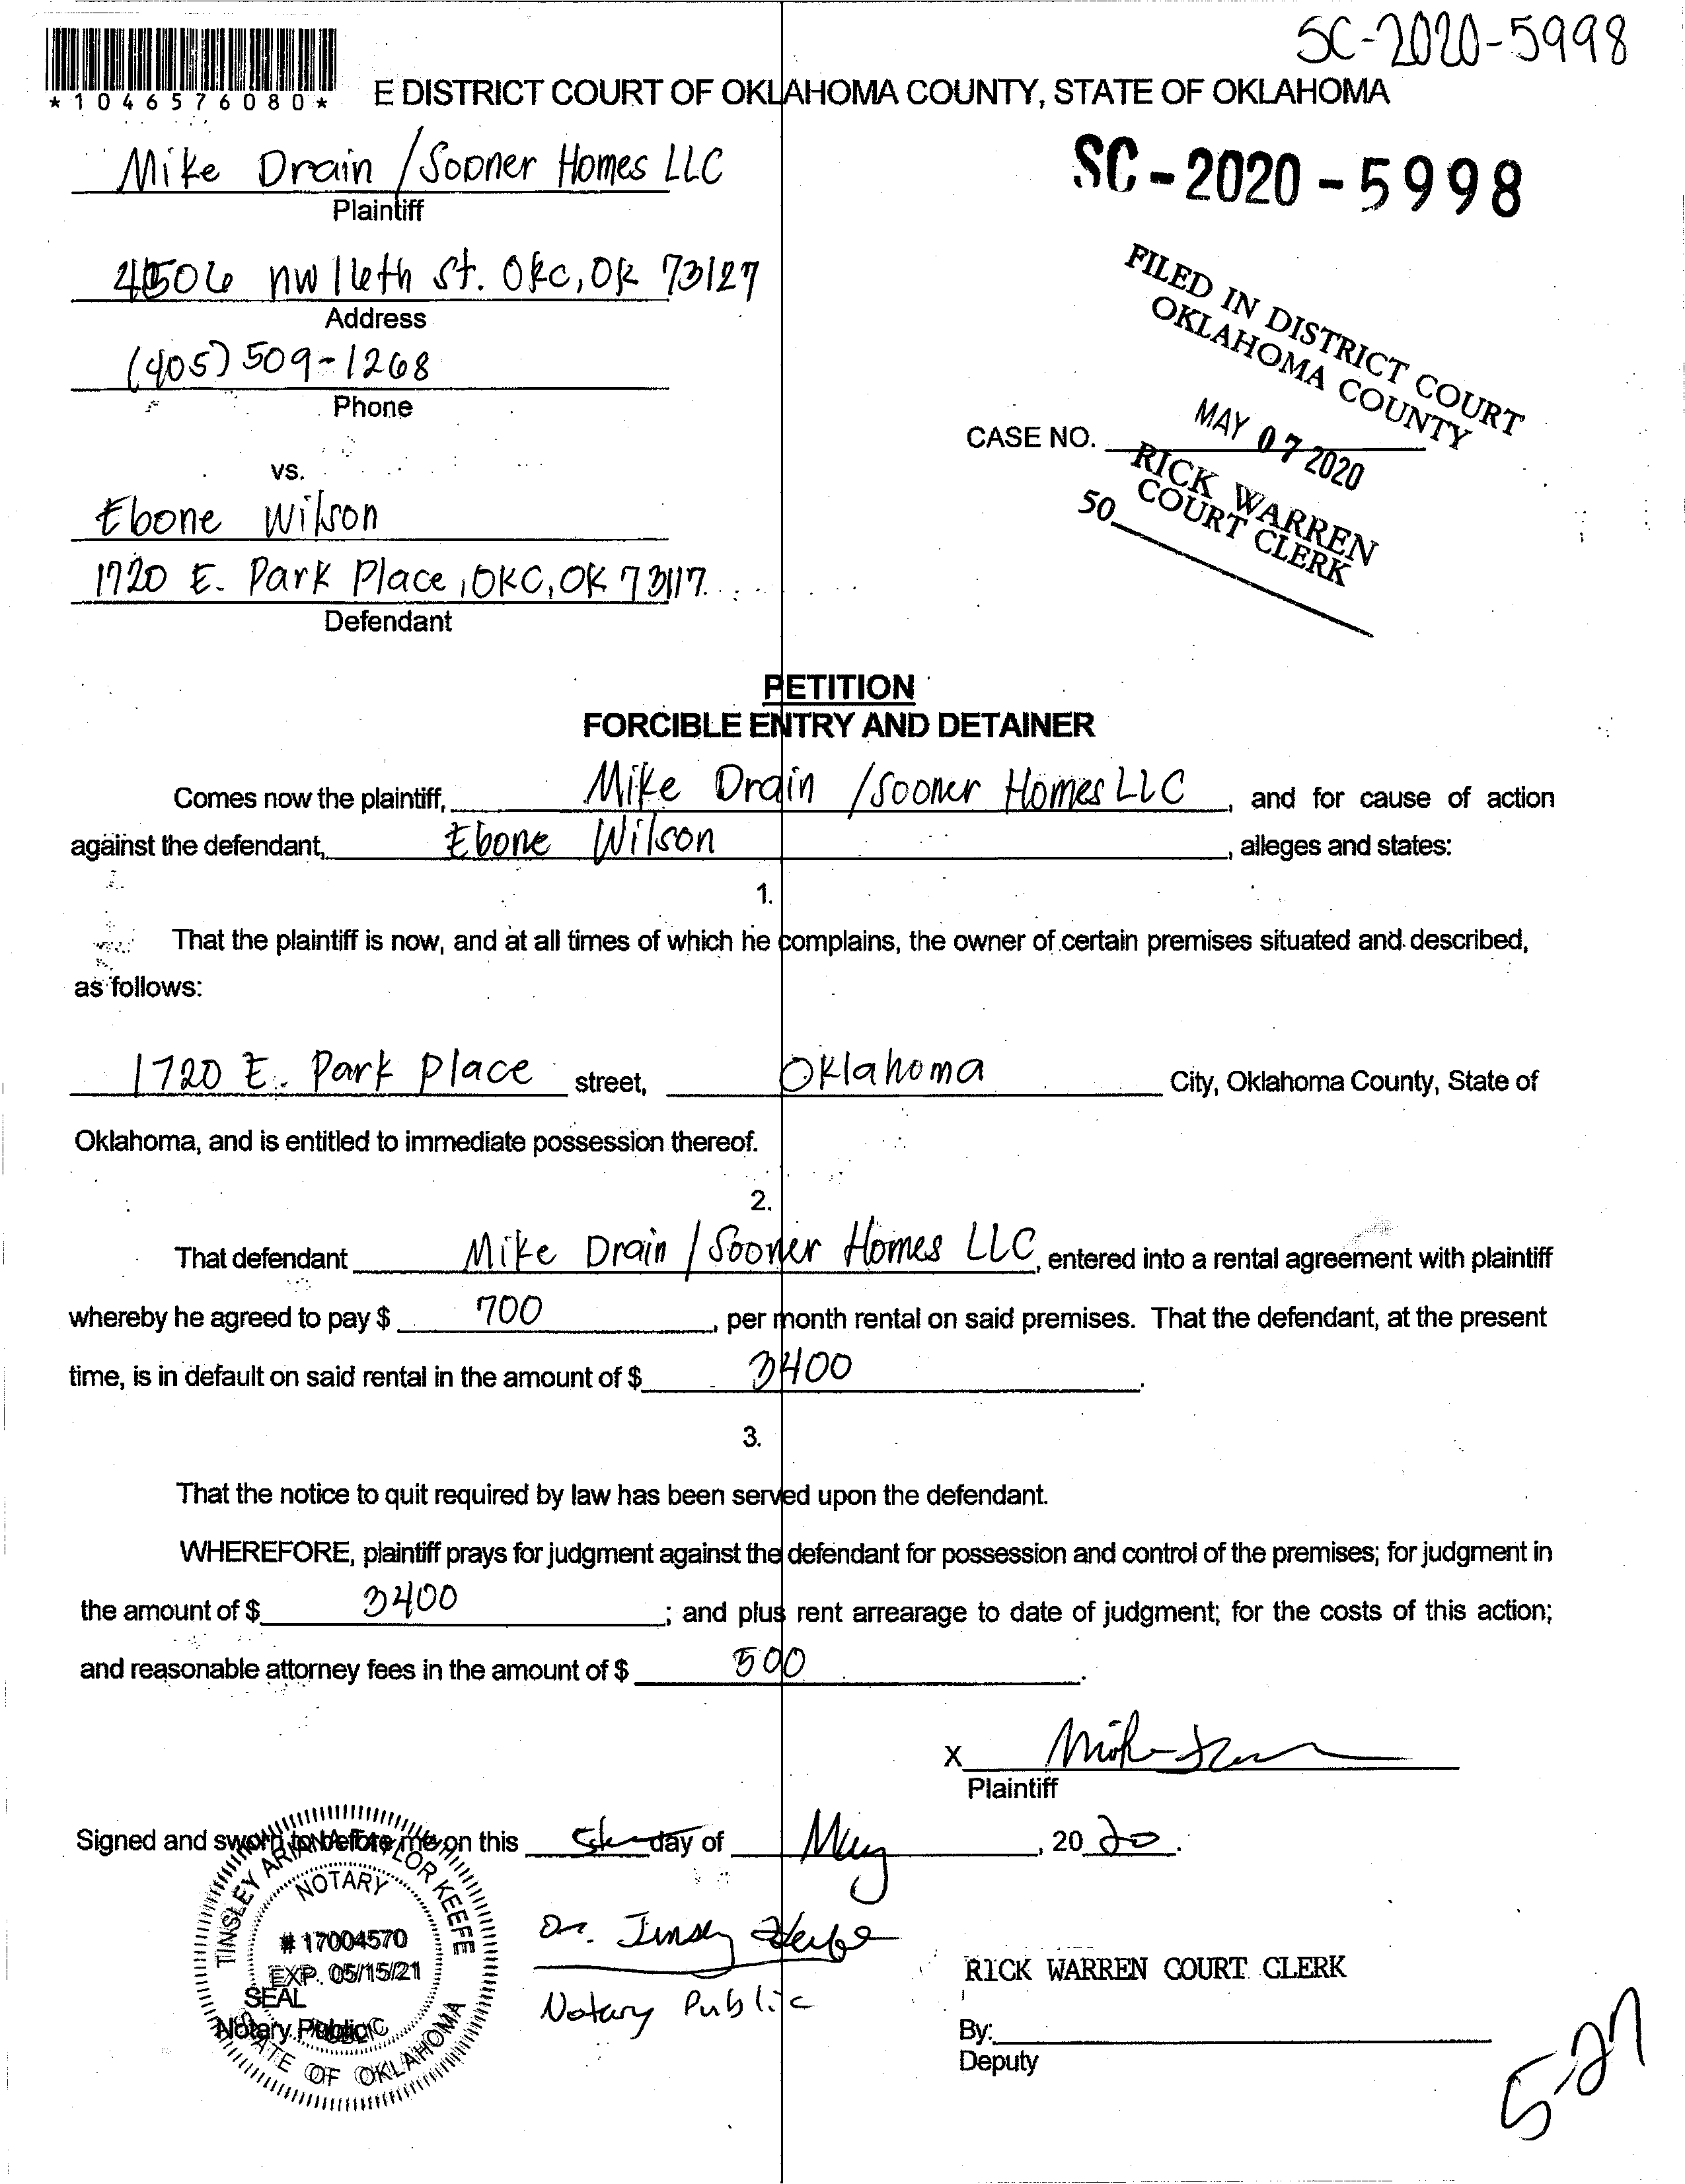 SC-2020-5998
*1046576080*
E DISTRICT COURT OF OKLAHOMA COUNTY, STATE OF OKLAHOMA
Mike Drain / Sooner Homes LLC
Plaintiff
SC-2020-5998
nw 16th st. OKC, OK 73127
Address
(405) 509-1268
Phone
FILED IN DISTRICT COURT
OKLAHOMA COUNTY
MAY 07 2020
RICK WARREN
COURT CLERK
50
CASE NO.
vs.
Ebone Wilson
1720 E. Park Place, OKC, OK 73117
Defendant
PETITION
FORCIBLE ENTRY AND DETAINER
Comes now the plaintiff, Mike Drain / Sooner Homes LLC, and for cause of action
against the defendant, Ebone Wilson, alleges and states:
1.
That the plaintiff is now, and at all times of which he complains, the owner of certain premises situated and described,
as follows:
1720 E. Park Place street, Oklahoma City, Oklahoma County, State of
Oklahoma, and is entitled to immediate possession thereof.
2.
That defendant Mike Drain / Sooner Homes LLC, entered into a rental agreement with plaintiff
whereby he agreed to pay $ 700, per month rental on said premises. That the defendant, at the present
time, is in default on said rental in the amount of $ 3400.
3.
That the notice to quit required by law has been served upon the defendant.
WHEREFORE, plaintiff prays for judgment against the defendant for possession and control of the premises; for judgment in
the amount of $ 3400; and plus rent arrearage to date of judgment; for the costs of this action;
and reasonable attorney fees in the amount of $ 500.
X
Plaintiff
Signed and sworn to before me on this 5th day of May, 2020.
TINSLEY ARIANA TAYLOR KEEFE
NOTARY
# 17004570
EXP. 05/15/21
SEAL
Notary Public
PUBLIC
STATE OF OKLAHOMA
Notary Public
RICK WARREN COURT CLERK
By:
Deputy
5-27